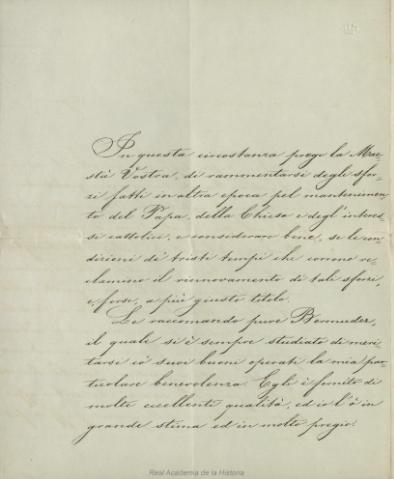 In questa circostanza prego la Mae-
stà Vostra, di rammentarsi degli sfor-
zi fatti in altra epoca pel mantenimen-
to del Papa, della Chiesa e degl'interes-
si cattolici, e considerar bene, se le con-
dizioni de' tristi tempi che corrono re-
clamino il rinnovamento di tali sforzi,
e, forse, a più giusto titolo.
Le raccomando pure Bermudez,
il quale si è sempre studiato di meri-
tarsi co' suoi buoni operati la mia par-
ticolare benevolenza. Egli è fornito di
molte eccellenti qualità, ed io l'ò in
grande stima ed in molto pregio.
Real Academia de la Historia